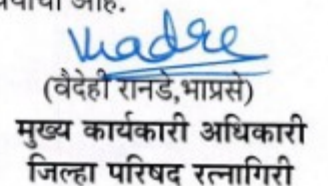 आहे.
(वैदेही रानडे,भाप्रसे)
मुख्य कार्यकारी अधिकारी
जिल्हा परिषद रत्नागिरी